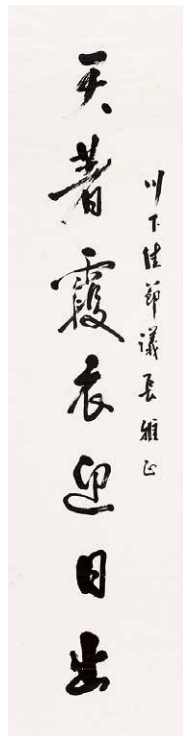 川下佳節議長雅正
天著霞衣迎日出